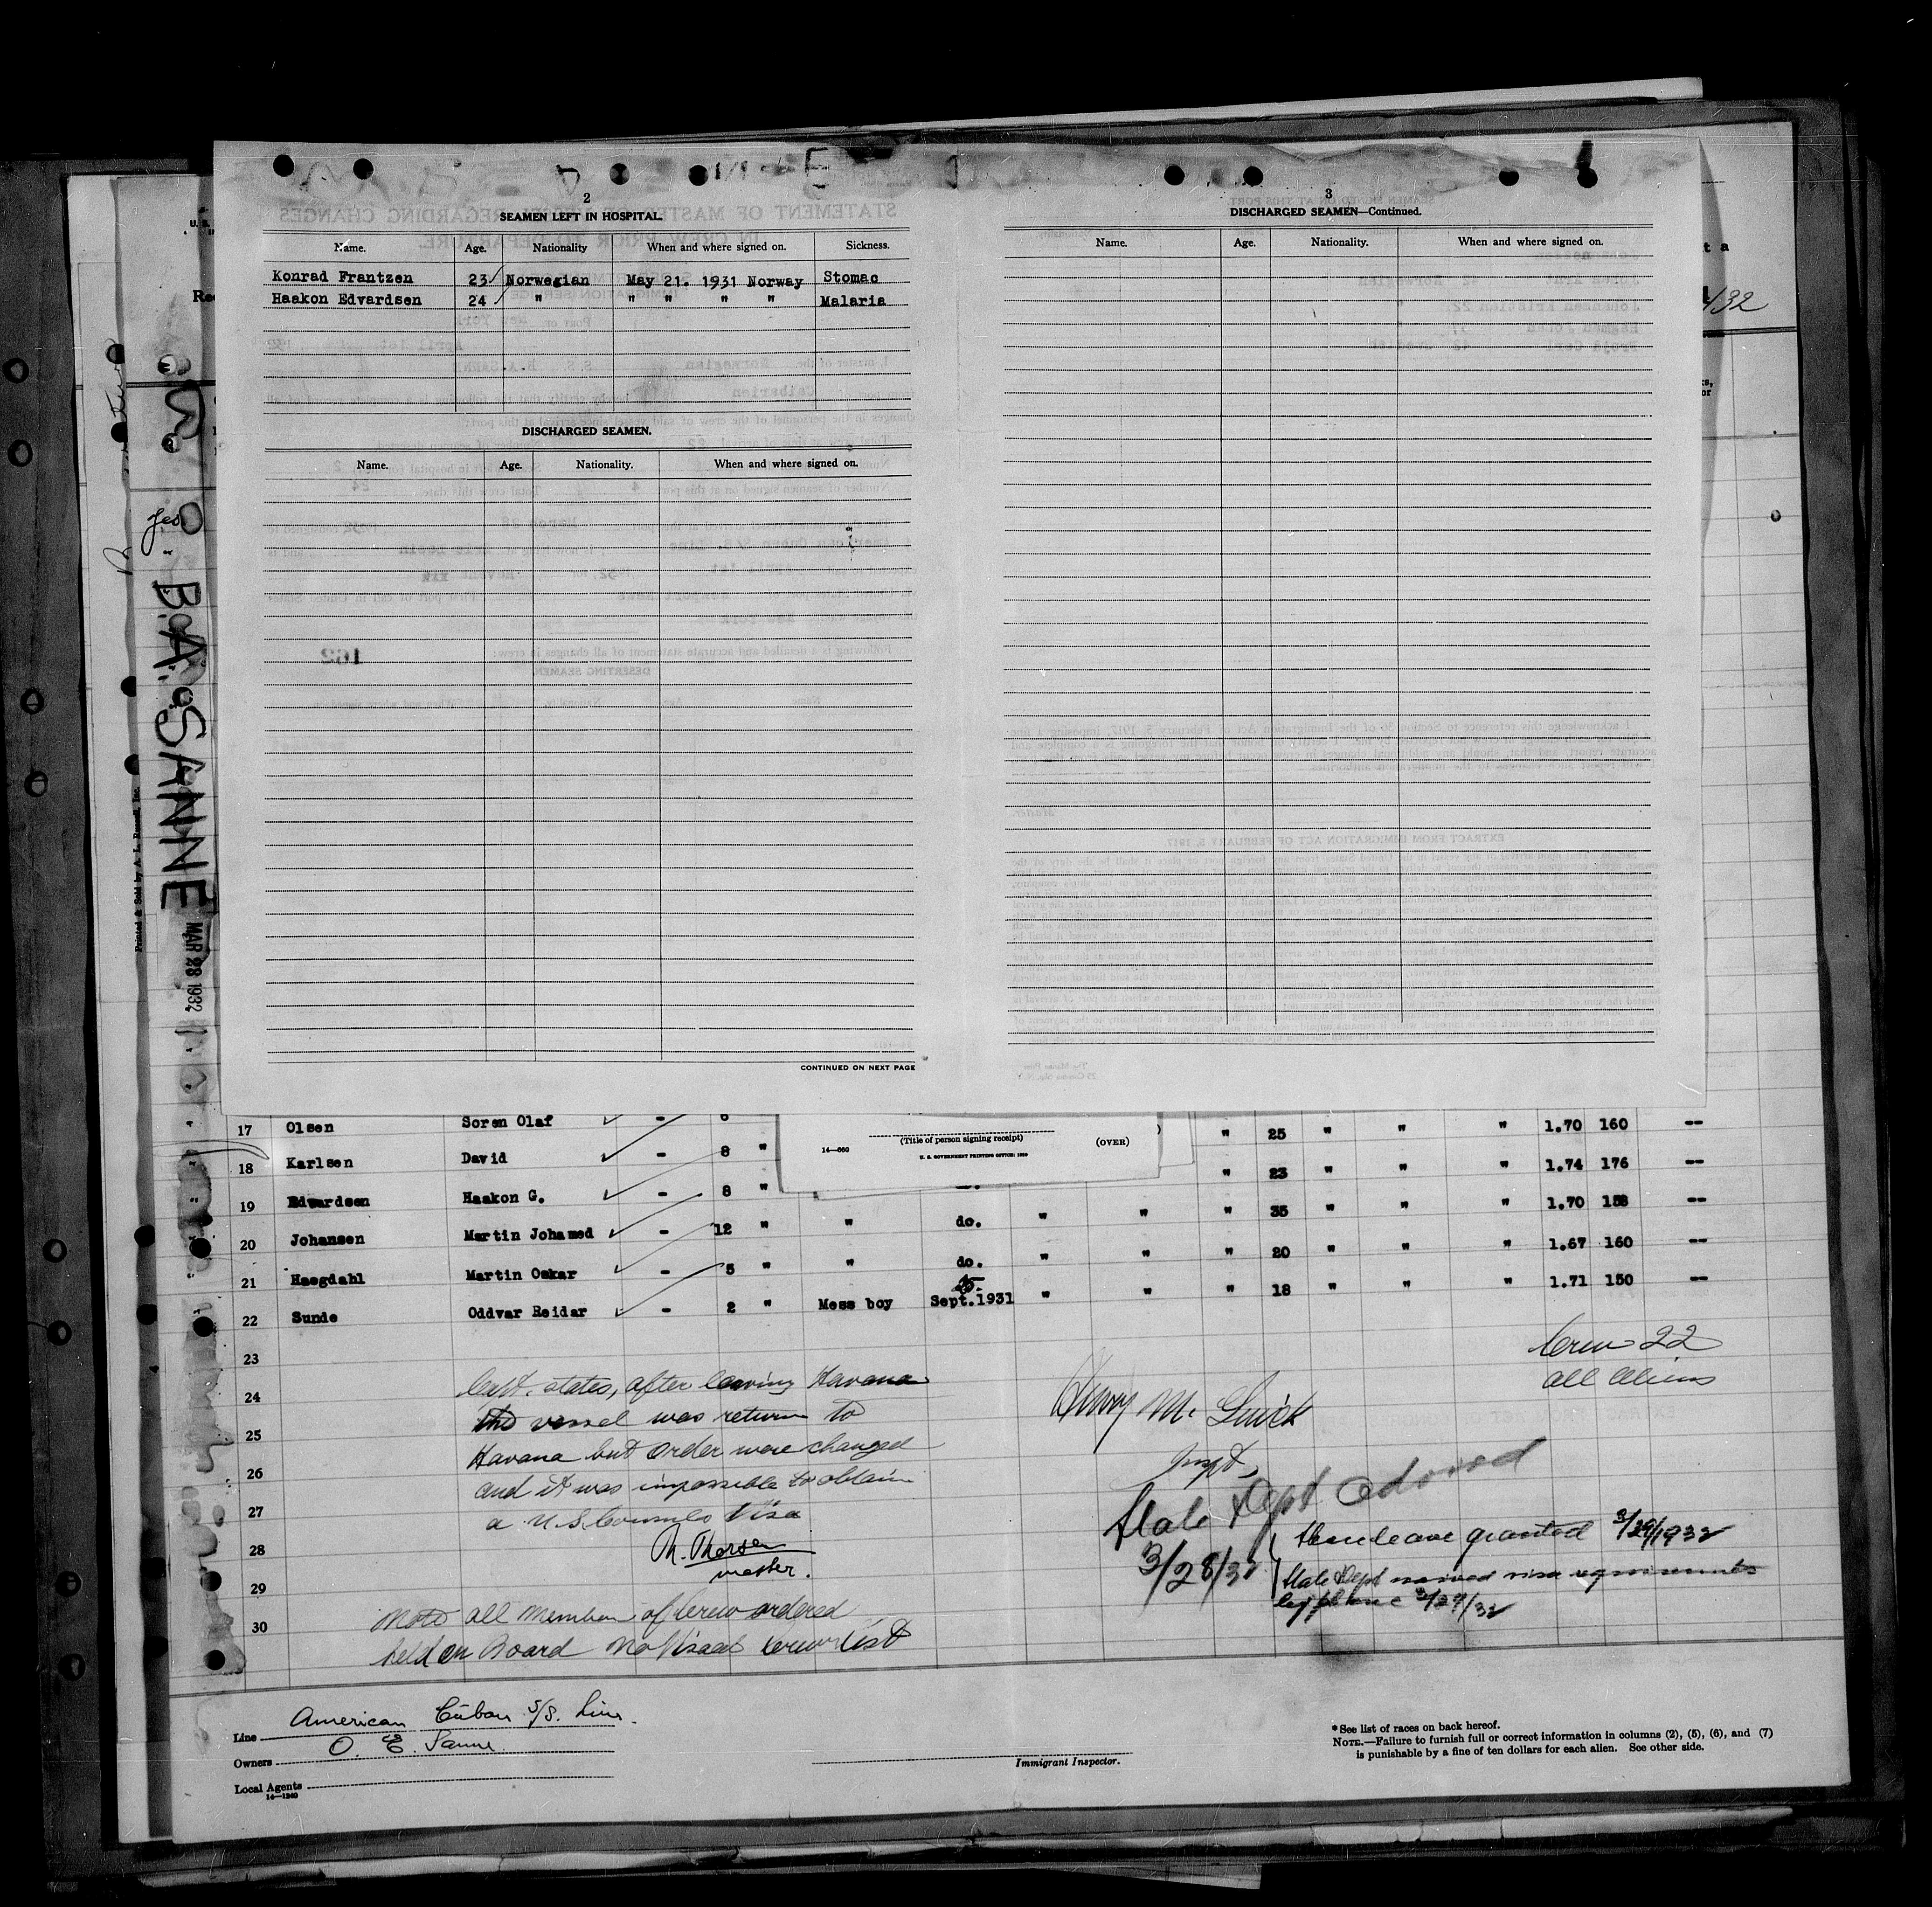 2
SEAMEN LEFT IN HOSPITAL.
Name. Age. Nationality When and where signed on. Sickness.
Konrad Frantzen 23 Norwegian May 21. 1931 Norway Stomac
Haakon Edvardsen 24 " " " " " Malaria
DISCHARGED SEAMEN.
Name. Age. Nationality. When and where signed on.
CONTINUED ON NEXT PAGE
3
DISCHARGED SEAMEN—Continued.
Name. Age. Nationality. When and where signed on.
/32
Yes
B.A. SANNE
MAR 28 1932
Printed & Sold by A. L. Russell, Inc.
(Title of person signing receipt)
(OVER)
14—660
U. S. GOVERNMENT PRINTING OFFICE: 1930
17 Olsen Soren Olaf - 6 " 25 " " " 1.70 160 --
18 Karlsen David - 8 " " 23 " " " 1.74 176 --
19 Edvardsen Haakon G. - 8 " " do. " " " 35 " " " 1.70 158 --
20 Johansen Martin Johamed - 12 " " do. " " " 20 " " " 1.67 160 --
21 Haegdahl Martin Oskar - 5 " " " " 18 " " " 1.71 150 --
22 Sunde Oddvar Reidar - 2 " Mess boy Sept.1931 "
23
24
25
26
27
28
29
30
Capt. states, after leaving Havana
the vessel was return to
Havana but order were changed
and it was impossible to obtain
a U.S. Consuls Visa
M. Thorsen
master.
Note all members of Crew ordered
held on Board no Visaed Crew List
Crew 22
all Aliens
Henry M.
Inspt.
State Dept advised
3/28/32
Shore leave granted 3/29/1932
State Dept waived visa requirements
by phone 3/29/32
Line American Cuban S/S. Line.
Owners O. E. Sanne.
Local Agents
14—1240
Immigrant Inspector.
*See list of races on back hereof.
NOTE.—Failure to furnish full or correct information in columns (2), (5), (6), and (7)
is punishable by a fine of ten dollars for each alien. See other side.